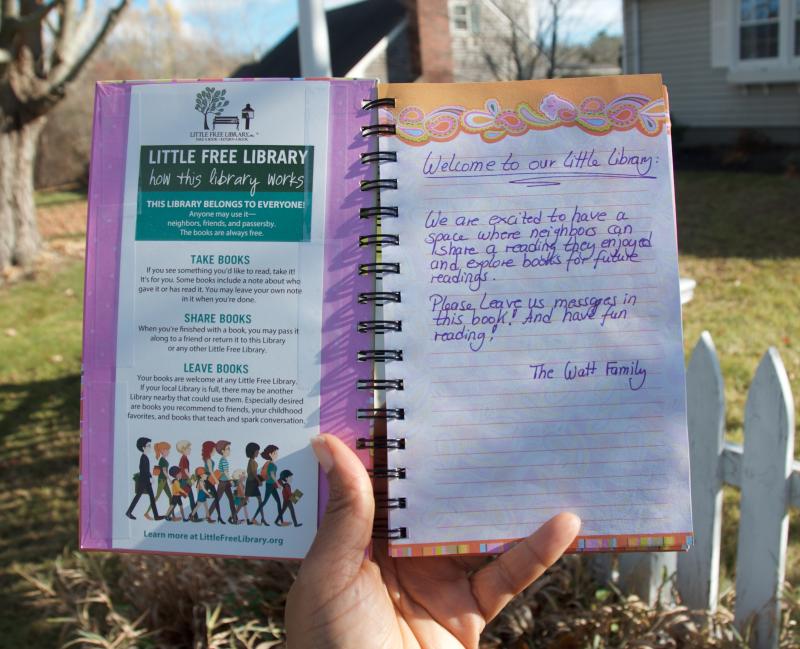 LITTLE FREE LIBRARY
TAKE A BOOK • RETURN A BOOK
LITTLE FREE LIBRARY
how this library works
THIS LIBRARY BELONGS TO EVERYONE!
Anyone may use it—
neighbors, friends, and passersby.
The books are always free.
TAKE BOOKS
If you see something you'd like to read, take it!
It's for you. Some books include a note about who
gave it or has read it. You may leave your own note
in it when you're done.
SHARE BOOKS
When you're finished with a book, you may pass it
along to a friend or return it to this Library
or any other Little Free Library.
LEAVE BOOKS
Your books are welcome at any Little Free Library.
If your local Library is full, there may be another
Library nearby that could use them. Especially desired
are books you recommend to friends, your childhood
favorites, and books that teach and spark conversation.
Learn more at LittleFreeLibrary.org
Welcome to our Little Library:
We are excited to have a
space where neighbors can
share a reading they enjoyed
and explore books for future
readings.
Please Leave us messages in
this book! And have fun
reading!
The Watt Family